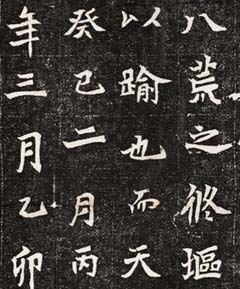 八荒之修堀
以踰也而天
癸巳二月丙
年三月乙卯